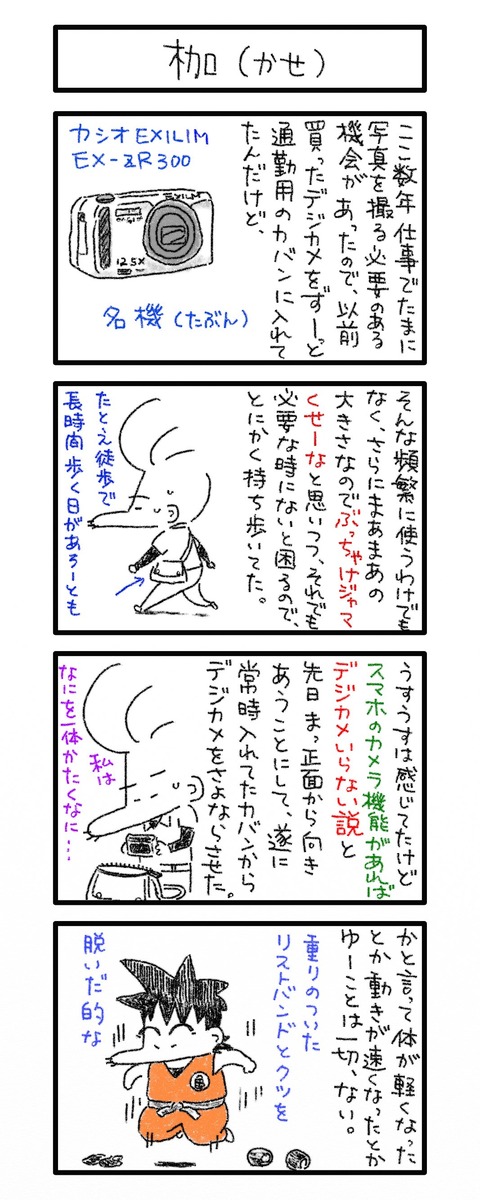 枷（かせ）
ここ数年仕事でたまに
写真を撮る必要のある
機会があったので、以前
買ったデジカメをずーっと
通勤用のカバンに入れて
たんだけど、
カシオEXILIM
EX-ZR300
12.5X
名機（たぶん）
そんな頻繁に使うわけでも
なく、さらにまあまあの
大きさなのでぶっちゃけジャマ
くせーなと思いつつ、それでも
必要な時にないと困るので、
とにかく持ち歩いてた。
たとえ徒歩で
長時間歩く日があろーとも
うすうすは感じてたけど
スマホのカメラ機能があれば
デジカメいらない説と
先日まっ正面から向き
あうことにして、遂に
常時入れてたカバンから
デジカメをさよならさせた。
私は
なにを一体かたくなに…
かと言って体が軽くなった
とか動きが速くなったとか
ゆーことは一切、ない。
重りのついた
リストバンドとクツを
脱いだ的な
亀